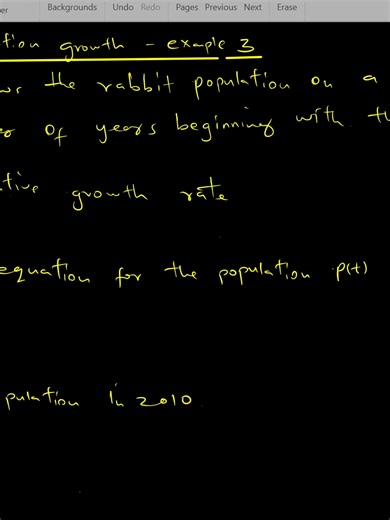 Backgrounds Undo Redo Pages Previous Next Erase
tion growth - exaple 3
the rabbit population on a
of years beginning with th
tive growth rate
equation for the population p(t)
pulation in 2010